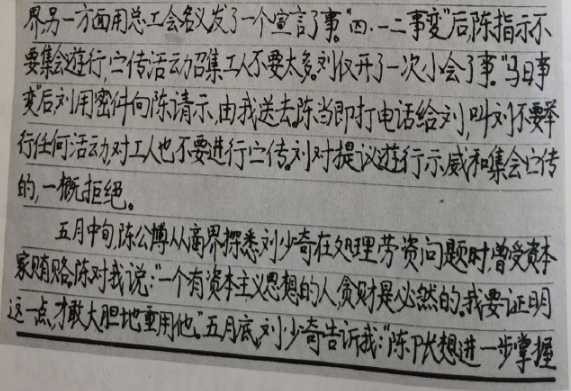 界另一方面用总工会名义发了一个宣言了事。“四·一二事变”后,陈指示不
要集会遊行,宣传活动召集工人不要太多。刘仅开了一次小会了事。“马日事
变”后刘用密件向陈请示,由我送去。陈当即打电话给刘,叫刘不要举
行任何活动,对工人也不要进行宣传。刘对提议遊行示威和集会宣传
的,一概拒绝。
五月中旬,陈公博从商界探悉刘少奇在处理劳资问题时,曾受资本
家贿赂,陈对我说:“一个有资本主义思想的人,贪财是必然的。我要证明
这一点,才敢大胆地重用他。”五月底,刘少奇告诉我:“陈P长想进一步掌握